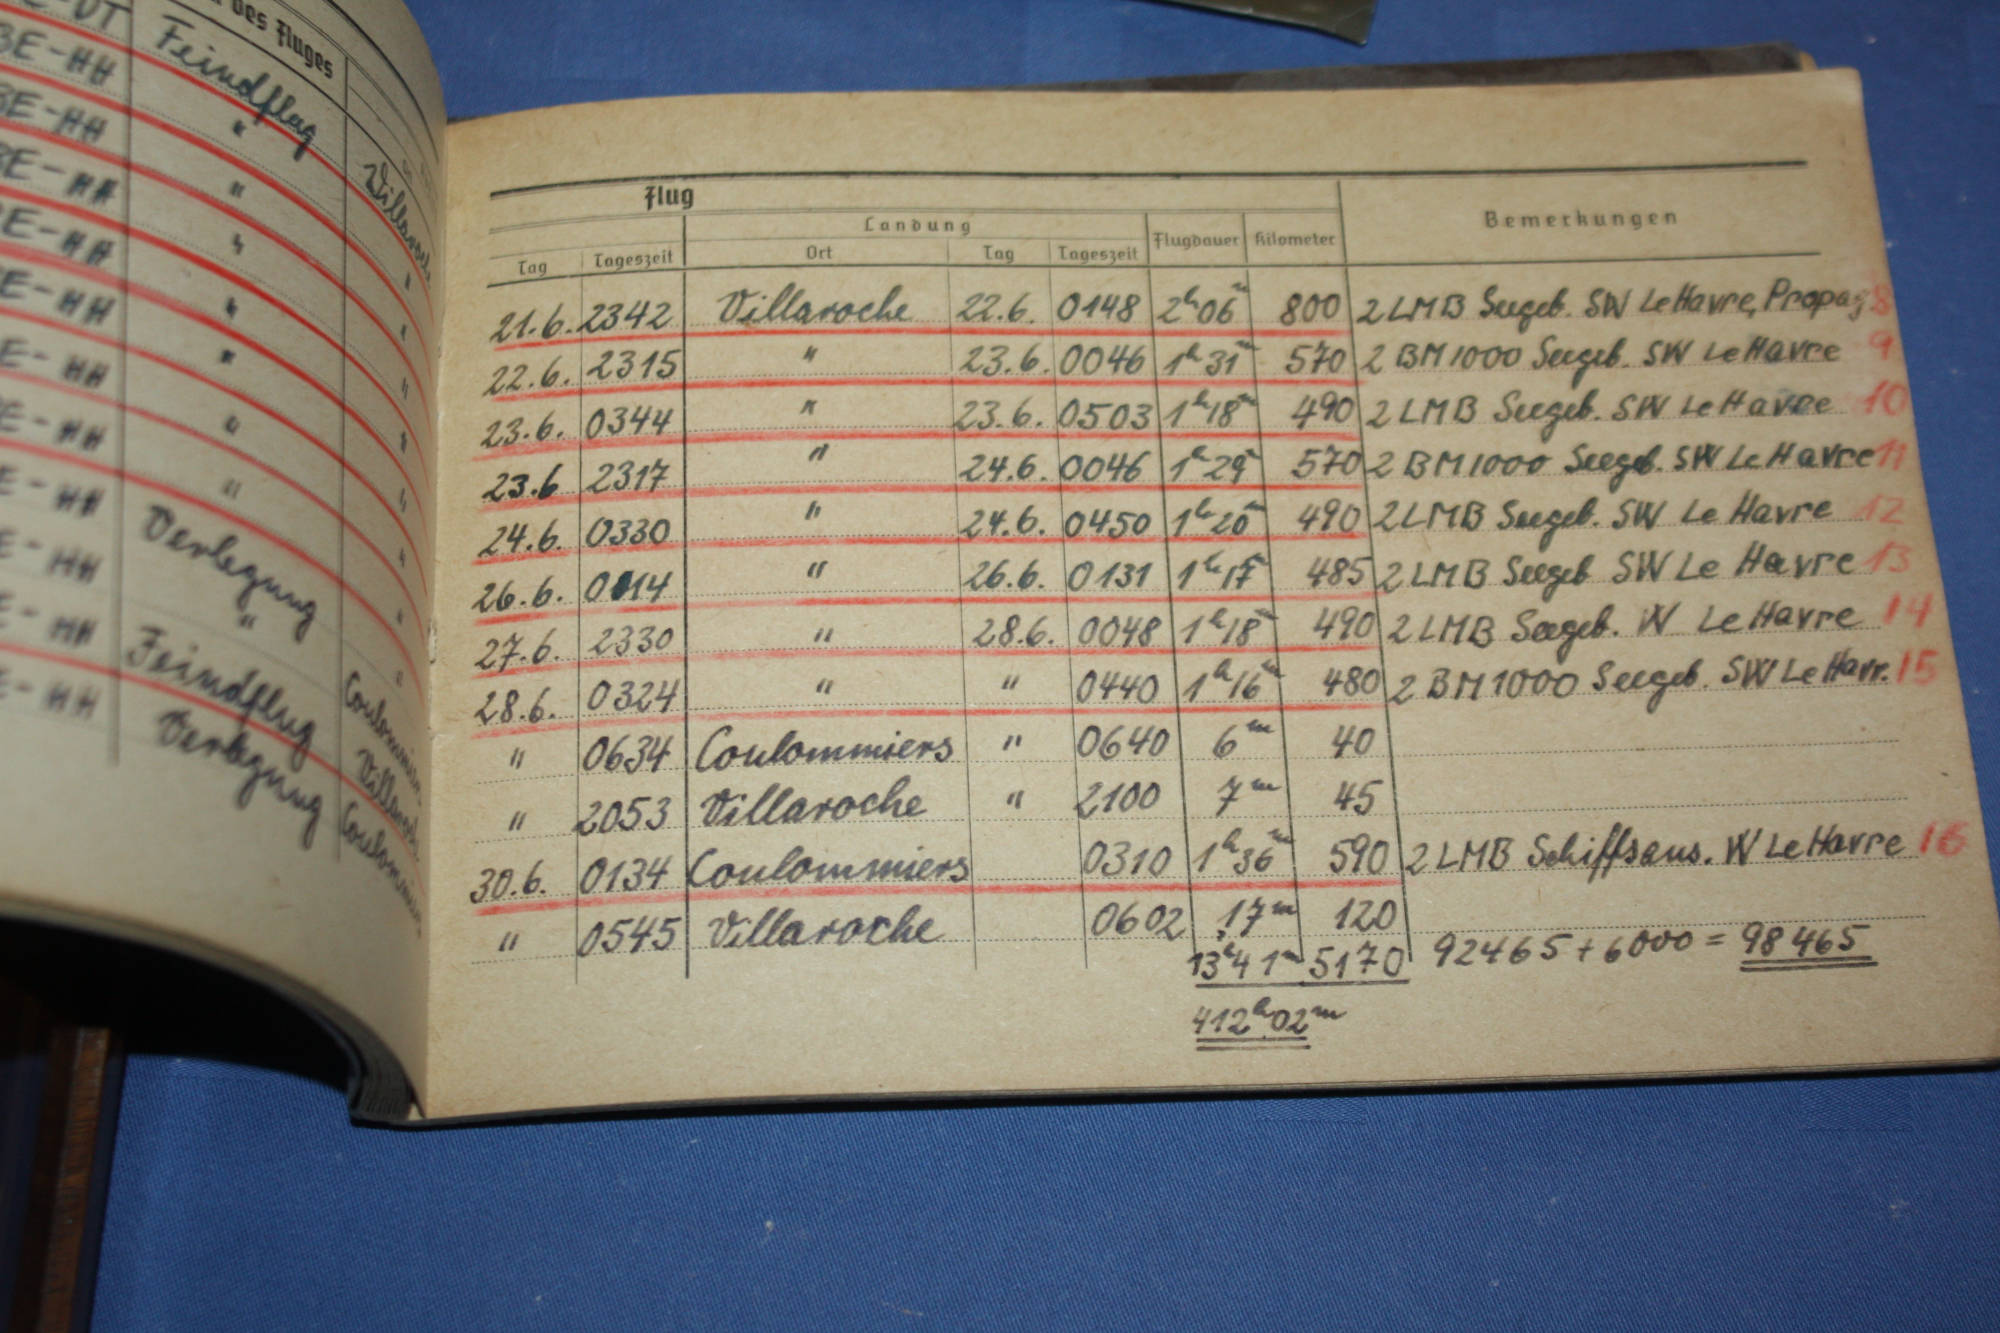 des Fluges
BE-HH Feindflug Villaroche
BE-HH " "
BE-HH " "
BE-HH " "
E-HH " "
E-HH " "
E-HH " "
E-HH " "
E-HH Verlegung "
E-HH " Coulommiers
E-HH Feindflug Villaroche
E-HH Verlegung Coulommiers
Flug
Landung
Bemerkungen
Tag Tageszeit Ort Tag Tageszeit Flugdauer Kilometer
21.6. 2342 Villaroche 22.6. 0148 2h 06m 800 2 LMB Seegeb. SW Le Havre, Propag 8
22.6. 2315 " 23.6. 0046 1h 31m 570 2 BM 1000 Seegeb. SW Le Havre 9
23.6. 0344 " 23.6. 0503 1h 18m 490 2 LMB Seegeb. SW Le Havre 10
23.6 2317 " 24.6. 0046 1h 29m 570 2 BM 1000 Seegeb. SW Le Havre 11
24.6. 0330 " 24.6. 0450 1h 20m 490 2 LMB Seegeb. SW Le Havre 12
26.6. 0014 " 26.6. 0131 1h 17m 485 2 LMB Seegeb SW Le Havre 13
27.6. 2330 " 28.6. 0048 1h 18m 490 2 LMB Seegeb. W Le Havre 14
28.6. 0324 " " 0440 1h 16m 480 2 BM 1000 Seegeb. SW Le Havr. 15
" 0634 Coulommiers " 0640 6m 40
" 2053 Villaroche " 2100 7m 45
30.6. 0134 Coulommiers 0310 1h 36m 590 2 LMB Schiffsans. W Le Havre 16
" 0545 Villaroche 0602 17m 120
13h 41m 5170 92465 + 6000 = 98465
412h 02m